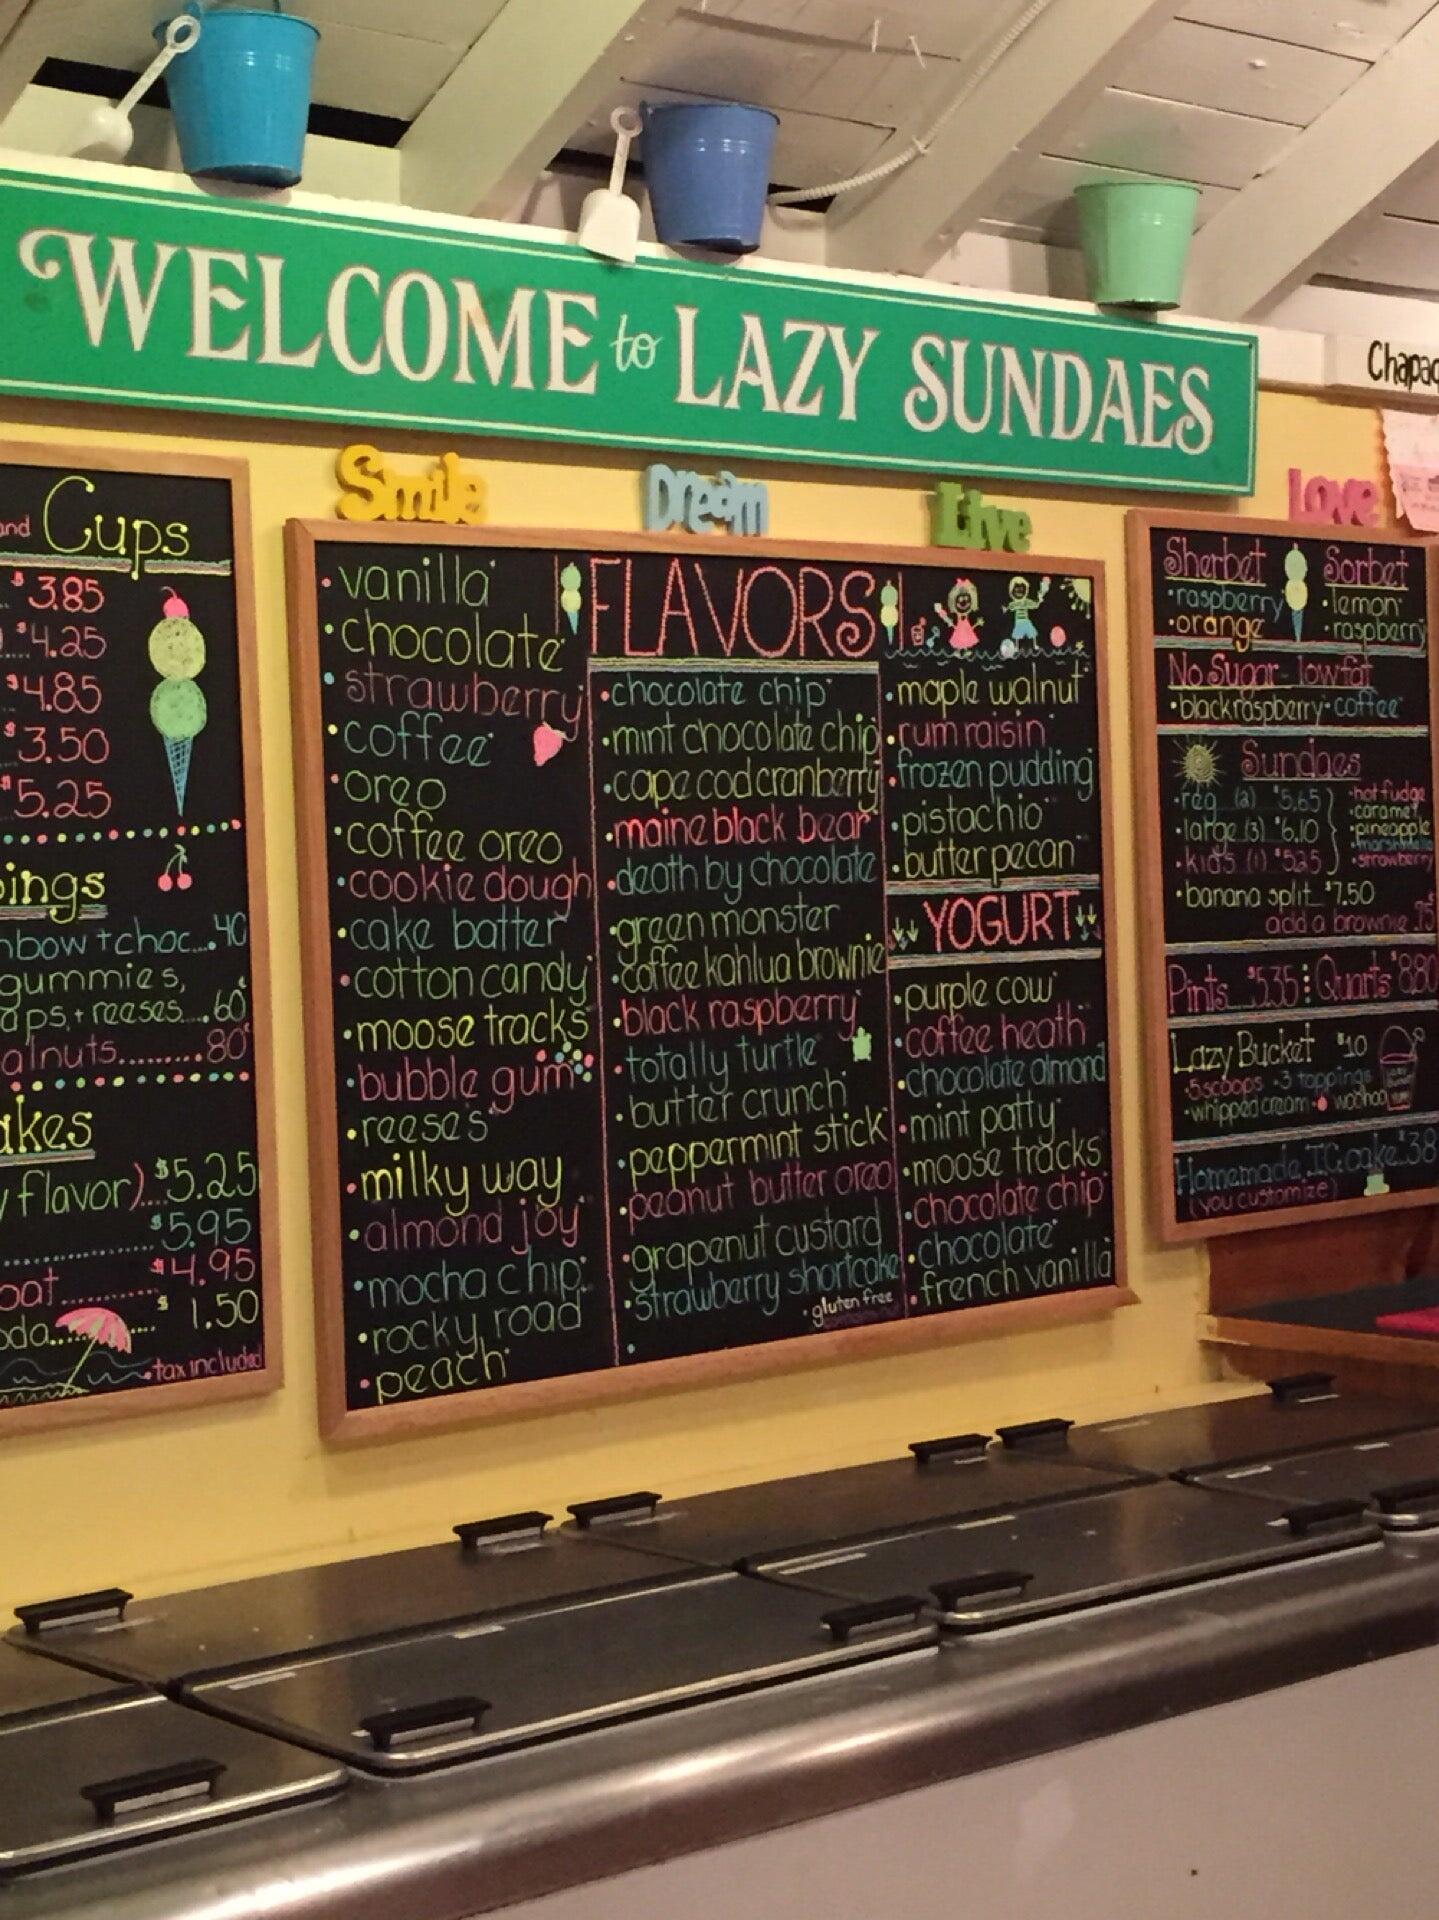 WELCOME to LAZY SUNDAES
Chapaq
Smile
Dream
Live
Love
and Cups
$3.85
$4.25
$4.85
$3.50
$5.25
pings
nbow + choc....40
gummies,
aps, + reeses....60¢
alnuts.........80¢
akes
y flavor)...$5.25
$5.95
oat..........$4.95
oda.......$1.50
tax included
FLAVORS
• vanilla
• chocolate
• strawberry
• coffee
• oreo
• coffee oreo
• cookie dough
• cake batter
• cotton candy
• moose tracks
• bubble gum
• reese's
• milky way
• almond joy
• mocha chip
• rocky road
• peach
• chocolate chip
• mint chocolate chip
• cape cod cranberry
• maine black bear
• death by chocolate
• green monster
• coffee kahlua brownie
• black raspberry
• totally turtle
• butter crunch
• peppermint stick
• peanut butter oreo
• grapenut custard
• strawberry shortcake
• gluten free
• maple walnut
• rum raisin
• frozen pudding
• pistachio
• butter pecan
YOGURT
• purple cow
• coffee heath
• chocolate almond
• mint patty
• moose tracks
• chocolate chip
• chocolate
• french vanilla
Sherbet
• raspberry
• orange
Sorbet
• lemon
• raspberry
No Sugar - lowfat
• black raspberry • coffee
Sundaes
• reg (2) $5.65
• large (3) $6.10
• kids (1) $5.25
• hot fudge
• caramel
• pineapple
• marshmallo
• strawberry
• banana split $7.50
add a brownie .75¢
Pints...$5.35 Quarts $8.80
Lazy Bucket $10
• 5 scoops • 3 toppings
• whipped cream • woohoo
Homemade IC cake $38
(you customize)